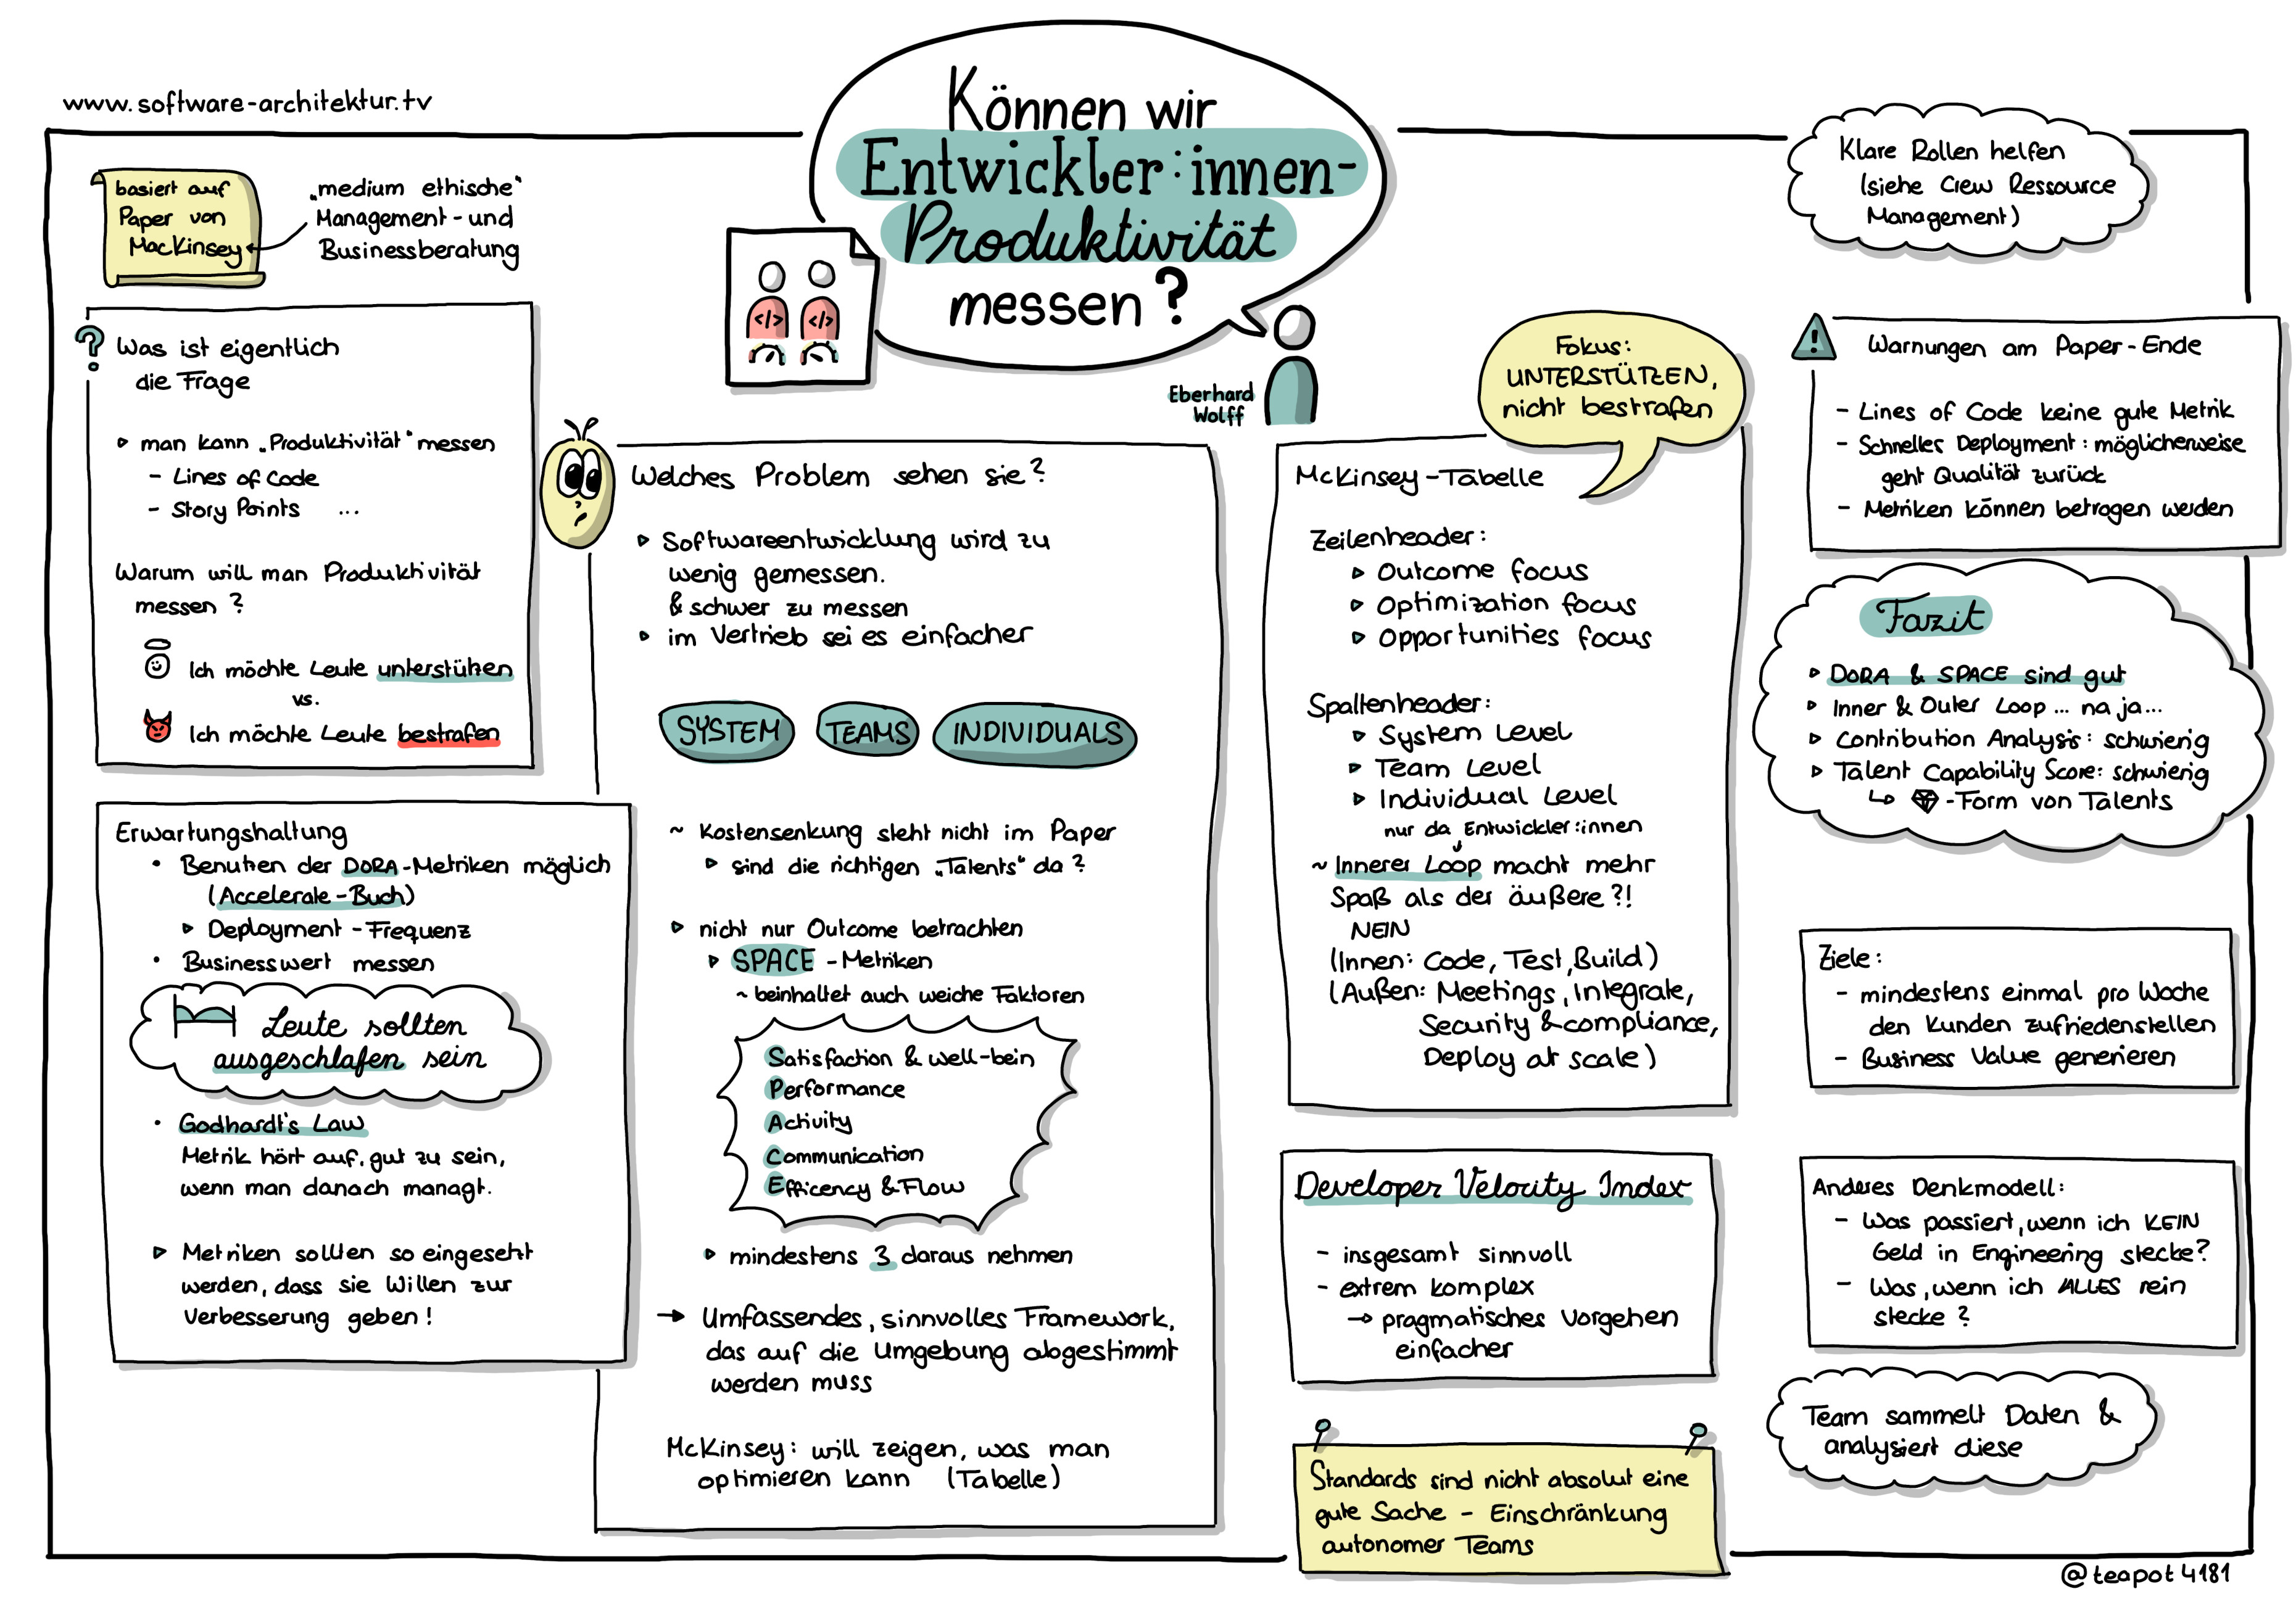 www.software-architektur.tv
Können wir
Entwickler:innen-
Produktivität
messen?
Eberhard
Wolff
</> </>
basiert auf
Paper von
MacKinsey
„medium ethische"
Management-und
Businessberatung
? Was ist eigentlich
die Frage
▹ man kann „Produktivität" messen
- Lines of Code
- Story Points ...
Warum will man Produktivität
messen?
Ich möchte Leute unterstützen
vs.
Ich möchte Leute bestrafen
Erwartungshaltung
• Benutzen der DORA-Metriken möglich
(Accelerate-Buch)
▹ Deployment-Frequenz
• Businesswert messen
Leute sollten
ausgeschlafen sein
• Godhardt's Law
Metrik hört auf, gut zu sein,
wenn man danach managt.
▹ Metriken sollten so eingesetzt
werden, dass sie Willen zur
Verbesserung geben!
Welches Problem sehen sie?
▹ Softwareentwicklung wird zu
wenig gemessen.
& schwer zu messen
▹ im Vertrieb sei es einfacher
SYSTEM TEAMS INDIVIDUALS
~ Kostensenkung steht nicht im Paper
▹ sind die richtigen „Talents" da?
▹ nicht nur Outcome betrachten
▹ SPACE-Metriken
~ beinhaltet auch weiche Faktoren
Satisfaction & well-bein
Performance
Activity
Communication
Efficency & Flow
▹ mindestens 3 daraus nehmen
→ Umfassendes, sinnvolles Framework,
das auf die Umgebung abgestimmt
werden muss
McKinsey: will zeigen, was man
optimieren kann (Tabelle)
Fokus:
UNTERSTÜTZEN,
nicht bestrafen
McKinsey-Tabelle
Zeilenheader:
▹ Outcome focus
▹ Optimization focus
▹ Opportunities focus
Spaltenheader:
▹ System Level
▹ Team Level
▹ Individual Level
nur da Entwickler:innen
~ Innerer Loop macht mehr
Spaß als der äußere?!
NEIN
(Innen: Code, Test, Build)
(Außen: Meetings, Integrate,
Security & compliance,
Deploy at scale)
Developer Velocity Index
- insgesamt sinnvoll
- extrem komplex
→ pragmatisches Vorgehen
einfacher
Standards sind nicht absolut eine
gute Sache - Einschränkung
autonomer Teams
Klare Rollen helfen
(siehe Crew Ressource
Management)
! Warnungen am Paper-Ende
- Lines of Code keine gute Metrik
- Schnelles Deployment: möglicherweise
geht Qualität zurück
- Metriken können betrogen werden
Fazit
▹ DORA & SPACE sind gut
▹ Inner & Outer Loop ... na ja...
▹ Contribution Analysis: schwierig
▹ Talent Capability Score: schwierig
↳ -Form von Talents
Ziele:
- mindestens einmal pro Woche
den Kunden zufriedenstellen
- Business Value generieren
Anderes Denkmodell:
- Was passiert, wenn ich KEIN
Geld in Engineering stecke?
- Was, wenn ich ALLES rein
stecke?
Team sammelt Daten &
analysiert diese
@teapot4181